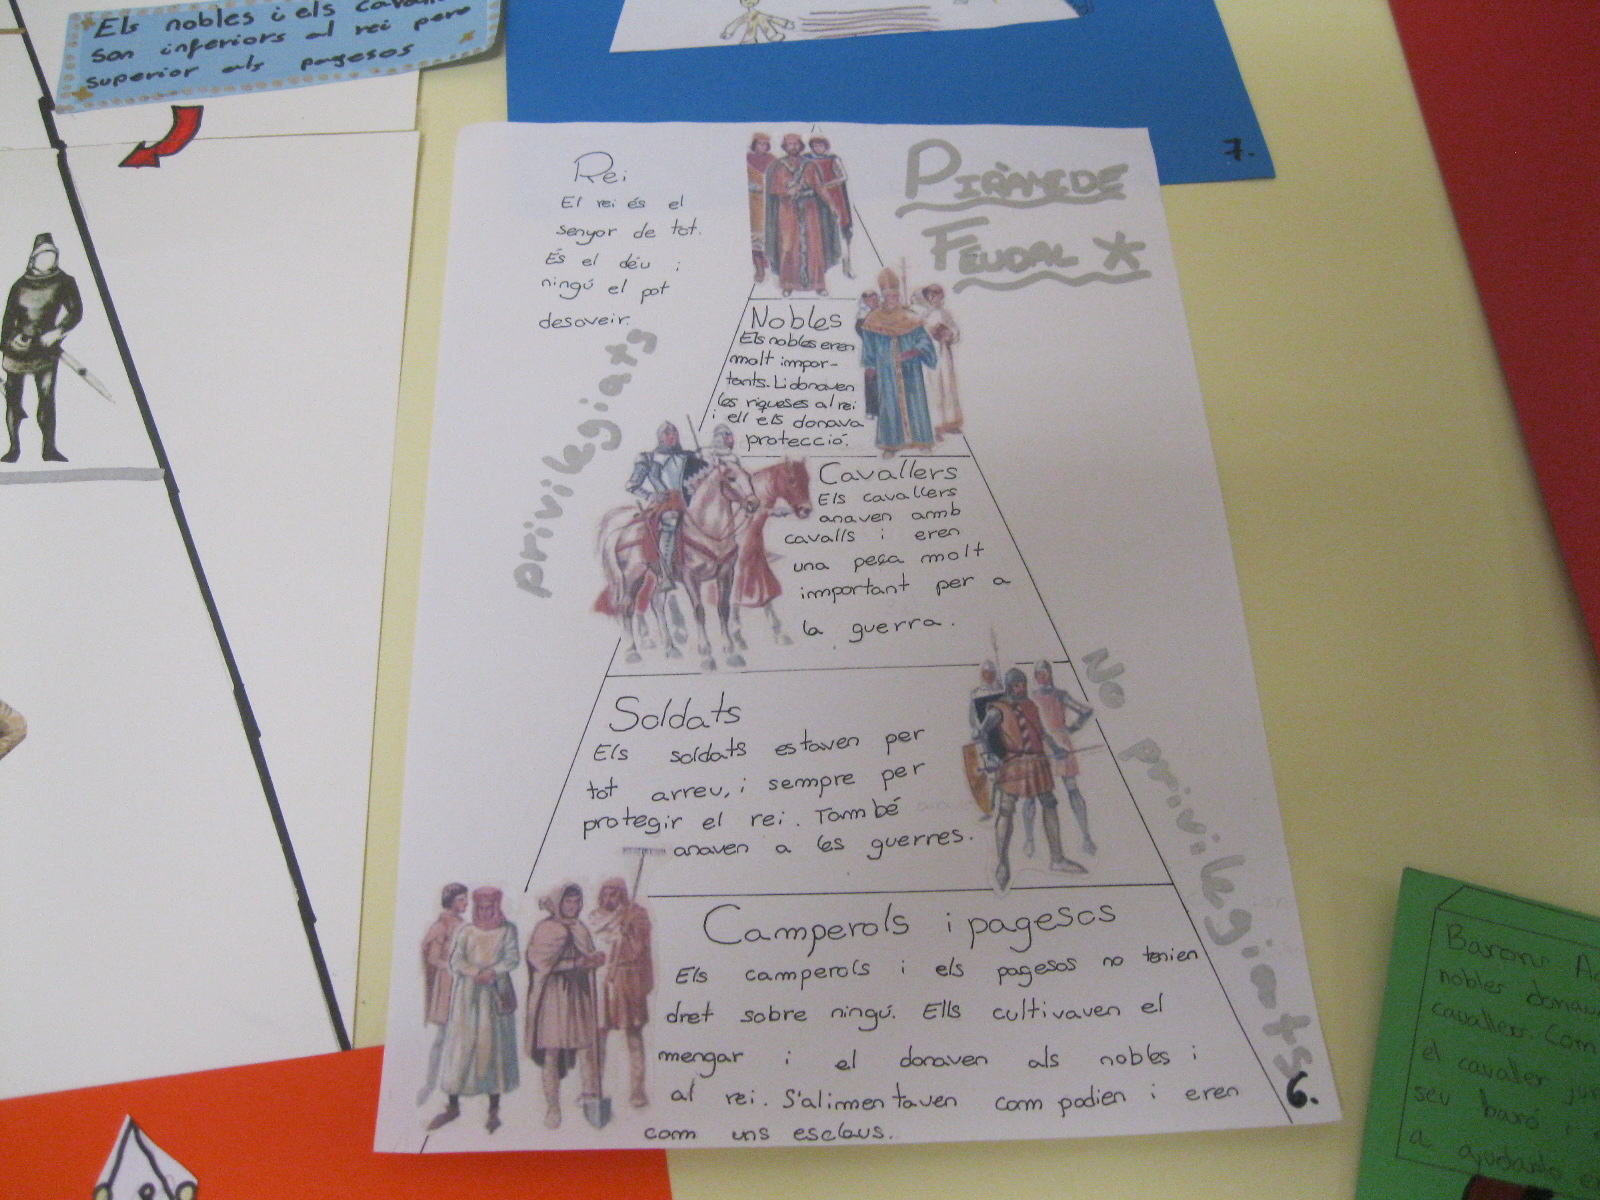 Els nobles i els
son inferiors al rei pero
superior als pagesos
7.
PIRÀMIDE
FEUDAL
Rei
El rei és el
senyor de tot.
És el déu i
ningú el pot
desoveir.
privilegiats
Nobles
Els nobles eren
molt impor-
tants. Li donaven
les riqueses al rei
i ell els donava
protecció.
Cavallers
Els cavallers
anaven amb
cavalls i eren
una peça molt
important per a
la guerra.
No privilegiants
Soldats
Els soldats estaven per
tot arreu, i sempre per
protegir el rei. També
anaven a les guerres.
Camperols i pagesos
Els camperols i els pagesos no tenien
dret sobre ningú. Ells cultivaven el
mengar i el donaven als nobles i
al rei. S'alimentaven com podien i eren
com uns esclaus.
6.
Barons
nobles
cavallers. Com
el cavaller
seu baró i
a